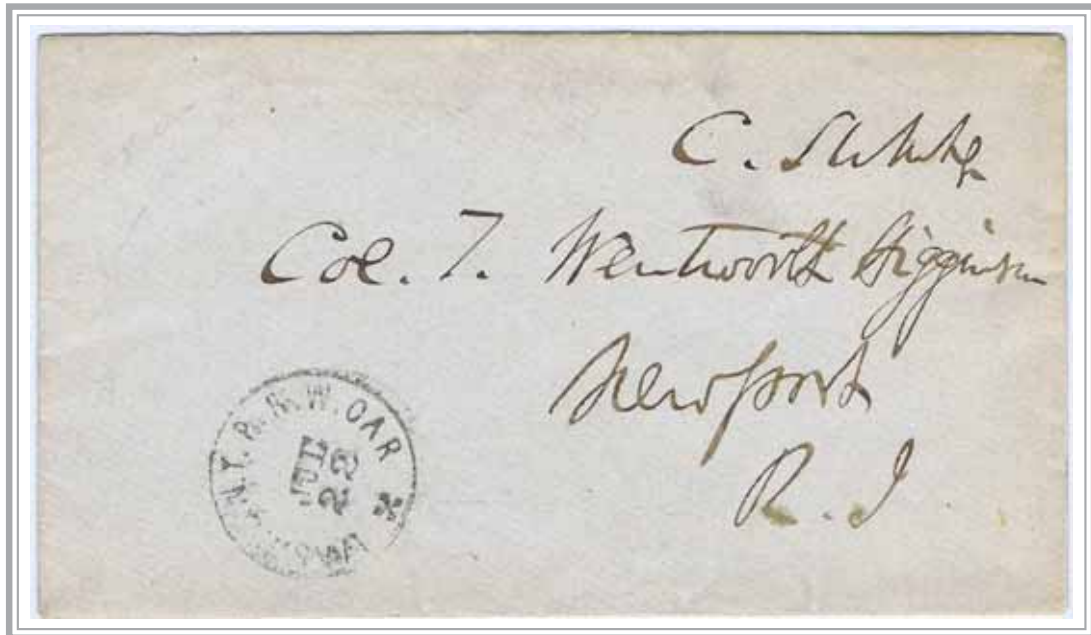 C.
Col. T. Wentworth Higginson
Newport
R. I
N.Y. R. R. W. CAR
JUL
22